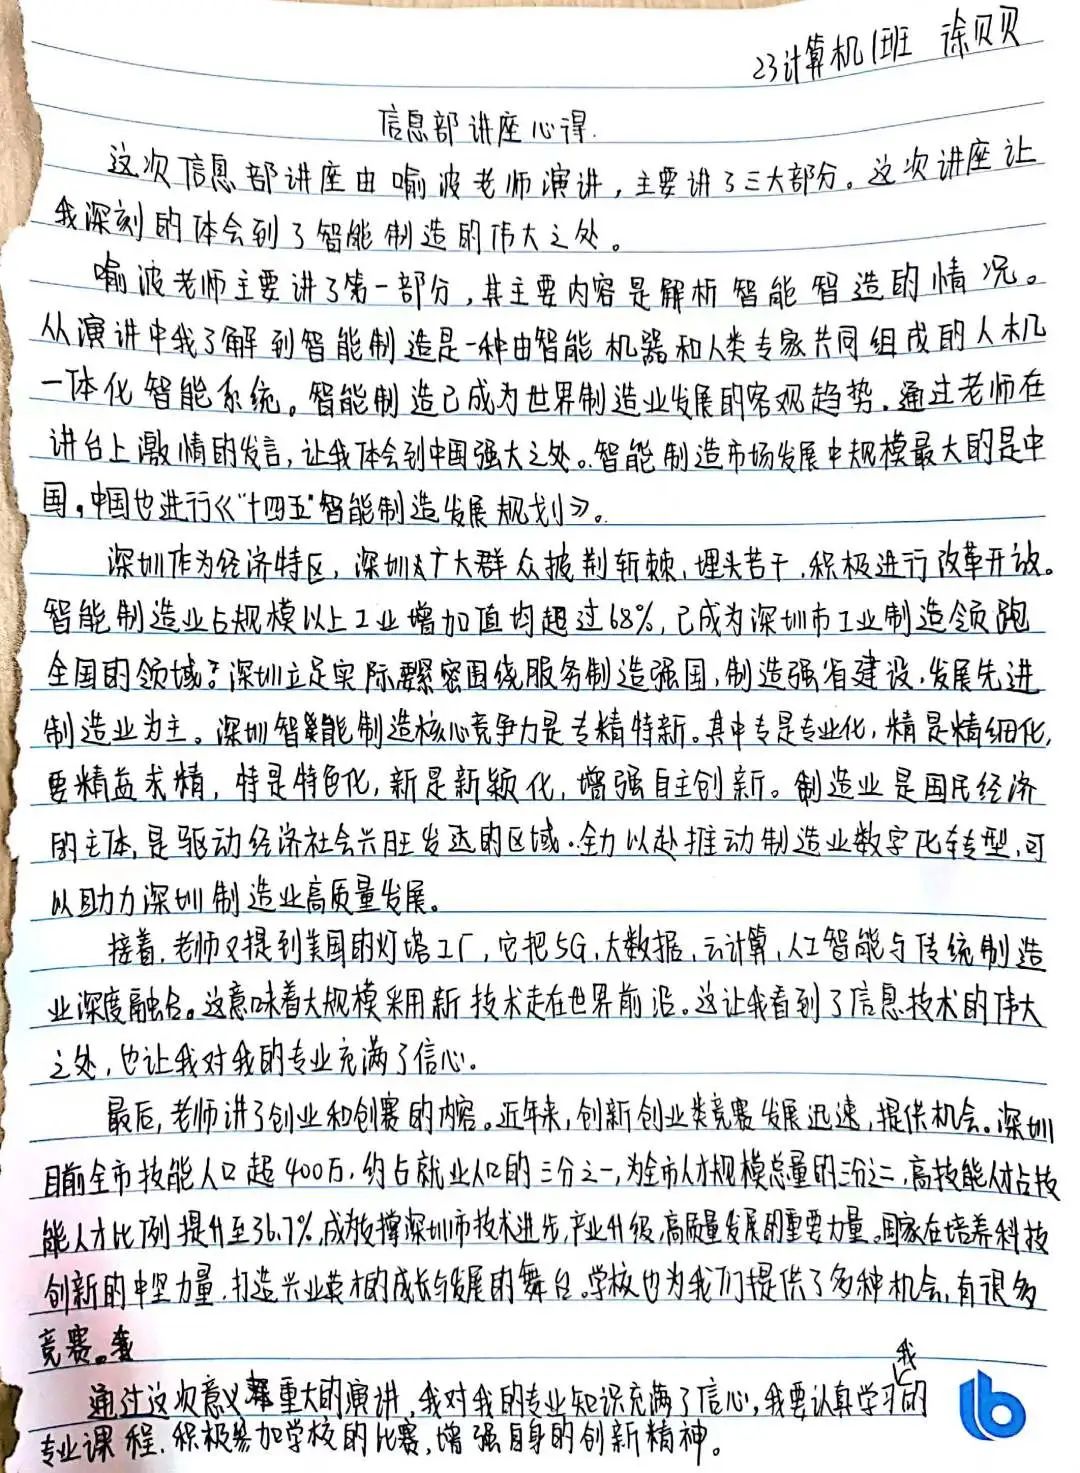 23计算机1班 徐贝贝
信息部讲座心得.
这次信息部讲座由喻波老师演讲，主要讲了三大部分。这次讲座让
我深刻的体会到了智能制造的伟大之处。
喻波老师主要讲了第一部分，其主要内容是解析智能智造的情况。
从演讲中我了解到智能制造是一种由智能机器和人类专家共同组成的人机
一体化智能系统。智能制造已成为世界制造业发展的客观趋势.通过老师在
讲台上激情的发言,让我体会到中国强大之处。智能制造市场发展中规模最大的是中
国。中国也进行《“十四五”智能制造发展规划》。
深圳作为经济特区，深圳广大群众披荆斩棘、埋头苦干.积极进行改革开放。
智能制造业占规模以上工业增加值均超过68%,已成为深圳市工业制造领跑
全国的领域。深圳立足实际紧密围绕服务制造强国,制造强省建设.发展先进
制造业为主。深圳智能制造核心竞争力是专精特新。其中专是专业化,精是精细化,
要精益求精，特是特色化,新是新颖化,增强自主创新。制造业是国民经济
的主体,是驱动经济社会兴旺发达的区域.全力以赴推动制造业数字化转型,可
以助力深圳制造业高质量发展。
接着.老师又提到美国的灯塔工厂,它把5G,大数据,云计算,人工智能与传统制造
业深度融合。这意味着大规模采用新技术走在世界前沿。这让我看到了信息技术的伟大
之处,也让我对我的专业充满了信心.
最后,老师讲了创业和创赛的内容。近年来,创新创业类竞赛发展迅速,提供机会。深圳
目前全市技能人口超400万,约占就业人口的三分之一,为全市人才规模总量的三分之二,高技能人才占技
能人才比例提升至36.7%,成为支撑深圳市技术进步,产业升级,高质量发展的重要力量。国家在培养科技
创新的中坚力量.打造兴业英才的成长与发展的舞台。学校也为我们提供了多种机会,有很多
竞赛。
通过这次意义重大的演讲,我对我的专业知识充满了信心,我要认真学习我的
专业课程.积极参加学校的比赛,增强自身的创新精神。